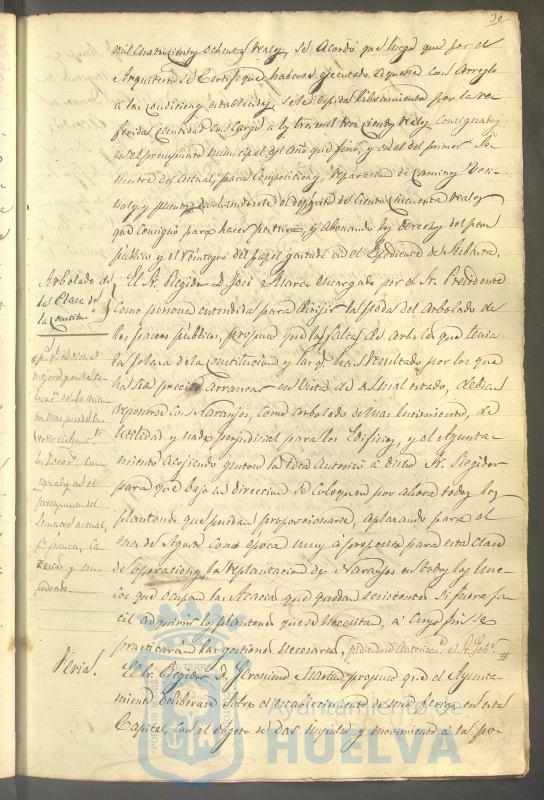 30
mil cuatrocientos ochenta reales, se acordó que luego que por el
Arquitecto se certifique haberse ejecutado aquella con arreglo
a las condiciones establecidas, se le espida libramiento por la re-
ferida cantidad con cargo a los tres mil trescientos reales consignados
en el presupuesto municipal del año que finó, y en el del primer se-
mestre del actual, para composicion y reparacion de caminos veci-
nales y puentes, devolviendole el depósito de ciento cincuenta reales
que consignó para hacer postura, y abonando los derechos del peso
publico y el reintegro del papel gastado en el Espediente de subasta.
Arbolado de
la Plaza de
la Constitucn.
El Sr. Regidor D. José Maria encargado por el Sr. Presidente
como persona entendida para dirijir las podas del arbolado de
los paseos públicos, propuso que las faltas de arboles que tenia
la plaza de la Constitucion y las que han resultado por los que
ha sido preciso arrancar en vista de su mal estado, debian
reponerse con Naranjos, como arbolado de mas lucimiento, de
utilidad y nada perjudicial para los Edificios, y el Ayunta-
miento acojiendo gustoso la idea autorizó a dicho Sr. Regidor
para que bajo su direccion se coloquen por ahora todos los
plantones que puedan proporcionarse, aplazando para el
mes de Agosto como época muy a proposito para esta clase
de operaciones, la replantacion de Naranjos en todos los hue-
cos que ocupan las Acacias que quedan existentes si fuera fa-
cil adquirir los plantones que se necesitan, a cuyo fin se
practicarán las gestiones necesarias, pidiendo autorizacn. al Sr. Gobr. #
mejora y en la co-
presupuesto del
Semestre actual,
Feria.
El Sr. Regidor D. Jeronimo Martin propuso que el Ayunta-
miento deliberase sobre el establecimiento de una feria en esta
Capital, con el objeto de dar impulso y movimiento a la po-
Ayuntamiento de
HUELVA